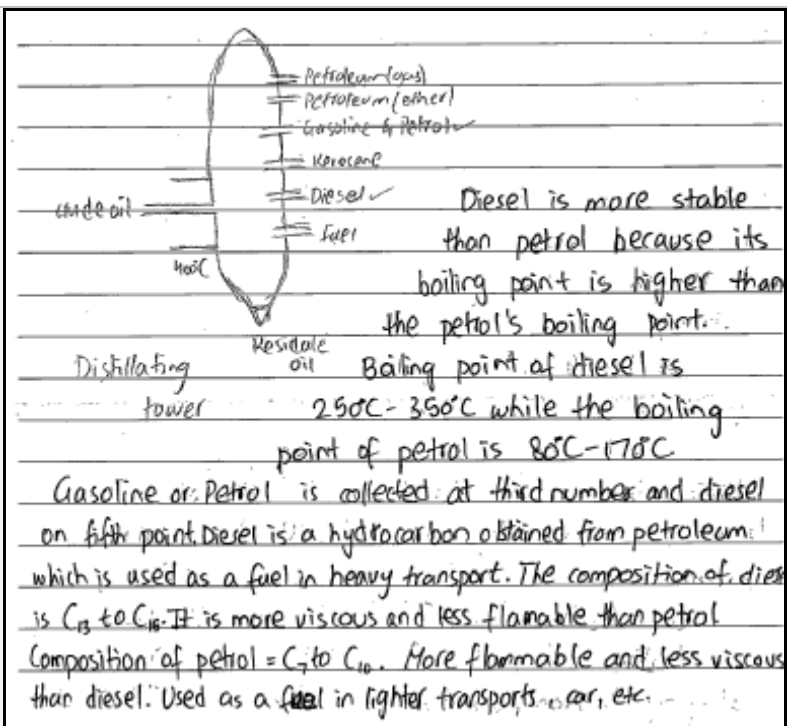 Petroleum (gas)
Petroleum (ether)
Gasoline & Petrol ✓
Kerocene
Diesel ✓
crude oil
fuel
400°C
Residale
oil
Distillating
tower
Diesel is more stable
than petrol because its
boiling point is higher than
the petrol's boiling point.
Boiling point of diesel is
250°C - 350°C while the boiling
point of petrol is 80°C - 170°C
Gasoline or Petrol is collected at third number and diesel
on fifth point. Diesel is a hydrocarbon obtained from petroleum
which is used as a fuel in heavy transport. The composition of dies
is C₁₃ to C₁₅. It is more viscous and less flamable than petrol
Composition of petrol = C₇ to C₁₀. More flammable and less viscous
than diesel. Used as a fuel in lighter transports, car, etc.